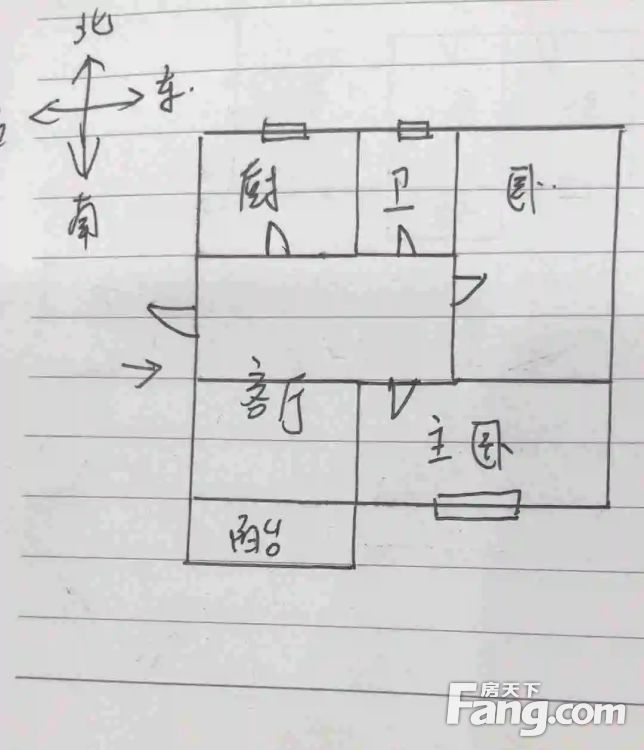 北
东.
南
厨
卫
卧..
客厅
主卧
阳台
房天下
Fang.com